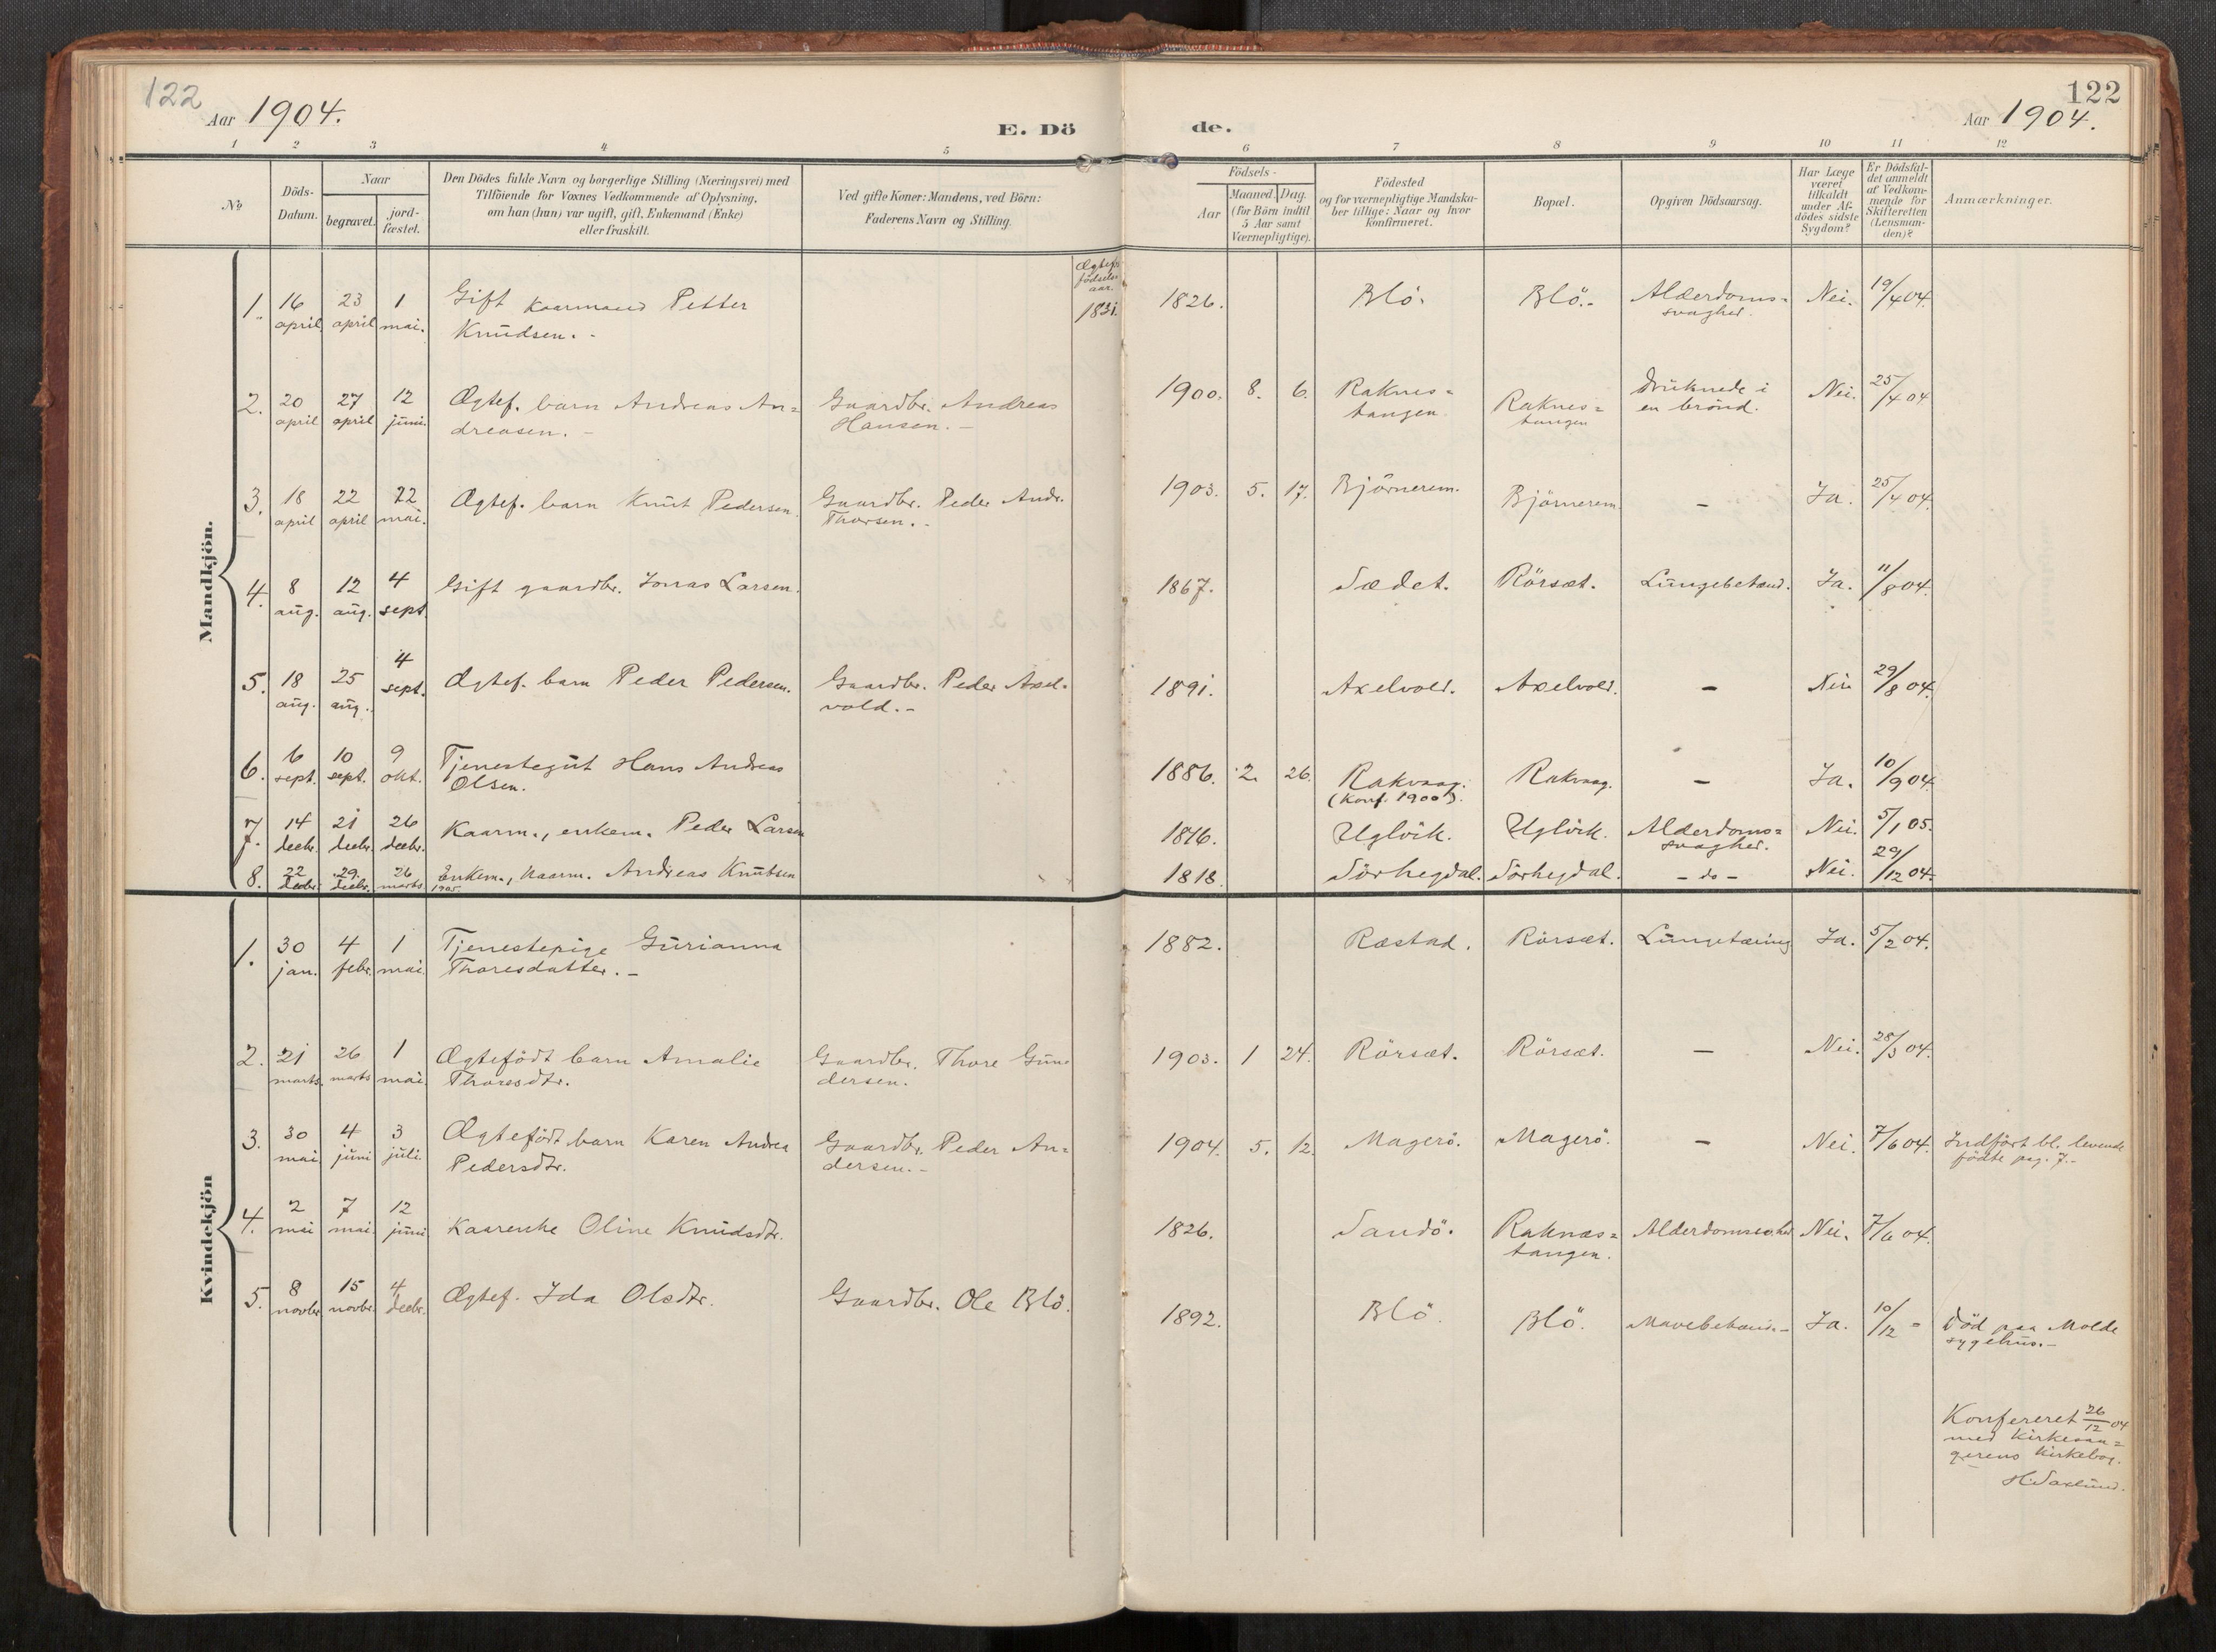 122
Aar 1904.
E. Dö
de.
122
Aar 1904.
1 2 3 4 5 6 7 8 9 10 11 12
No
Döds-
Datum.
Naar
begravet.
jord-
fæstet.
Den Dödes fulde Navn og borgerlige Stilling (Næringsvei) med
Tilföiende for Voxnes Vedkommende af Oplysning,
om han (hun) var ugift, gift, Enkemand (Enke)
eller fraskilt.
Ved gifte Koner: Mandens, ved Börn:
Faderens Navn og Stilling.
Födsels-
Aar
Maaned. Dag.
(for Börn indtil
5 Aar samt
Værnepligtige).
Födested
og for værnepligtige Mandska-
ber tillige: Naar og hvor
konfirmeret.
Bopæl.
Opgiven Dödsaarsag.
Har Læge
været
tilkaldt
under Af-
dödes sidste
Sygdom?
Er Dödsfal-
det anmeldt
af Vedkom-
mende for
Skifteretten
(Lensman-
den)?
Anmærkninger.
Mandkjön.
Ægtef.
födsels-
aar.
1. 16 april 23 april 1 mai. Gift Kaarmand Petter
Knudsen. - 1831. 1826. Blö. Blö.- Alderdoms=
svaghed. Nei. 19/4 04.
2. 20 april 27 april 12 juni. Ægtef. barn Andreas An=
dreasen. - Gaardbr. Andreas
Hansen. - 1900. 8. 6. Raknes=
tangen. Raknes=
tangen Druknede i
en brönd. Nei. 25/4 04
3. 18 april 22 april 22 mai. Ægtef. barn Knut Pedersen. Gaardbr. Peder Andr.
Thorsen. - 1903. 5. 17. Björnerem. Björnerem - Ja. 25/4 04.
4. 8 aug. 12 aug. 4 sept. Gift gaardbr. Jonas Larsen. 1867. Sædet. Rörsæt. Lungebetænd. Ja. 11/8 04.
5. 18 aug. 25 aug. 4 sept. Ægtef. barn Peder Pedersen. Gaardbr. Peder Axel-
vold. - 1891. Axelvold. Axelvold. - Nei 29/8 04.
6. 6 sept. 10 sept. 9 okt. Tjenestegut Hans Andreas
Olsen. 1886. 2. 26. Rakvaag.
(Konf. 1900). Rakvaag. - Ja. 10/9 04.
7. 14 decbr. 21 decbr. 26 decbr. Kaarm., enkem. Peder Larsen 1816. Uglvik. Uglvik. Alderdoms=
svaghed. Nei. 5/1 05.
8. 22 decbr. 29. decbr. 26 marts 1905. Enkem., Kaarm. Andreas Knutsen 1818. Sörhegdal. Sörhegdal. - do - Nei. 29/12 04.
Kvindekjön
1. 30 jan. 4 febr. 1 mai. Tjenestepige Gurianna
Thoresdatter. - 1882. Ræstad. Rörsæt. Lungetæring Ja. 5/2 04.
2. 21 marts. 26 marts 1 mai. Ægtefödt barn Amalie
Thoresdtr. Gaardbr. Thore Gun
dersen. 1903. 1 24. Rörsæt. Rörsæt. - Nei. 28/3 04.
3. 30 mai 4 juni 3 juli. Ægtefödt barn Karen Andrea
Pedersdtr. Gaardbr. Peder An=
dersen. - 1904. 5. 12. Magerö. Magerö. - Nei. 7/6 04. Indfört bl. levende
födte pag. 7.-
4. 2 mai 7 mai 12 juni Kaarenke Oline Knudsdtr. 1826. Sandö. Raknæs=
tangen. Nei. 7/6 04.
5. 8 novbr. 15 novbr. 4 decbr. Ægtef. Ida Olsdtr. Gaardbr. Ole Blö. 1892. Blö. Blö. Mavebetænd.- Ja. 10/12 = Död paa Molde
sygehus.-
Konfereret 26/12 04
med Kirkesan=
gerens Kirkebog.
H. Saxlund.